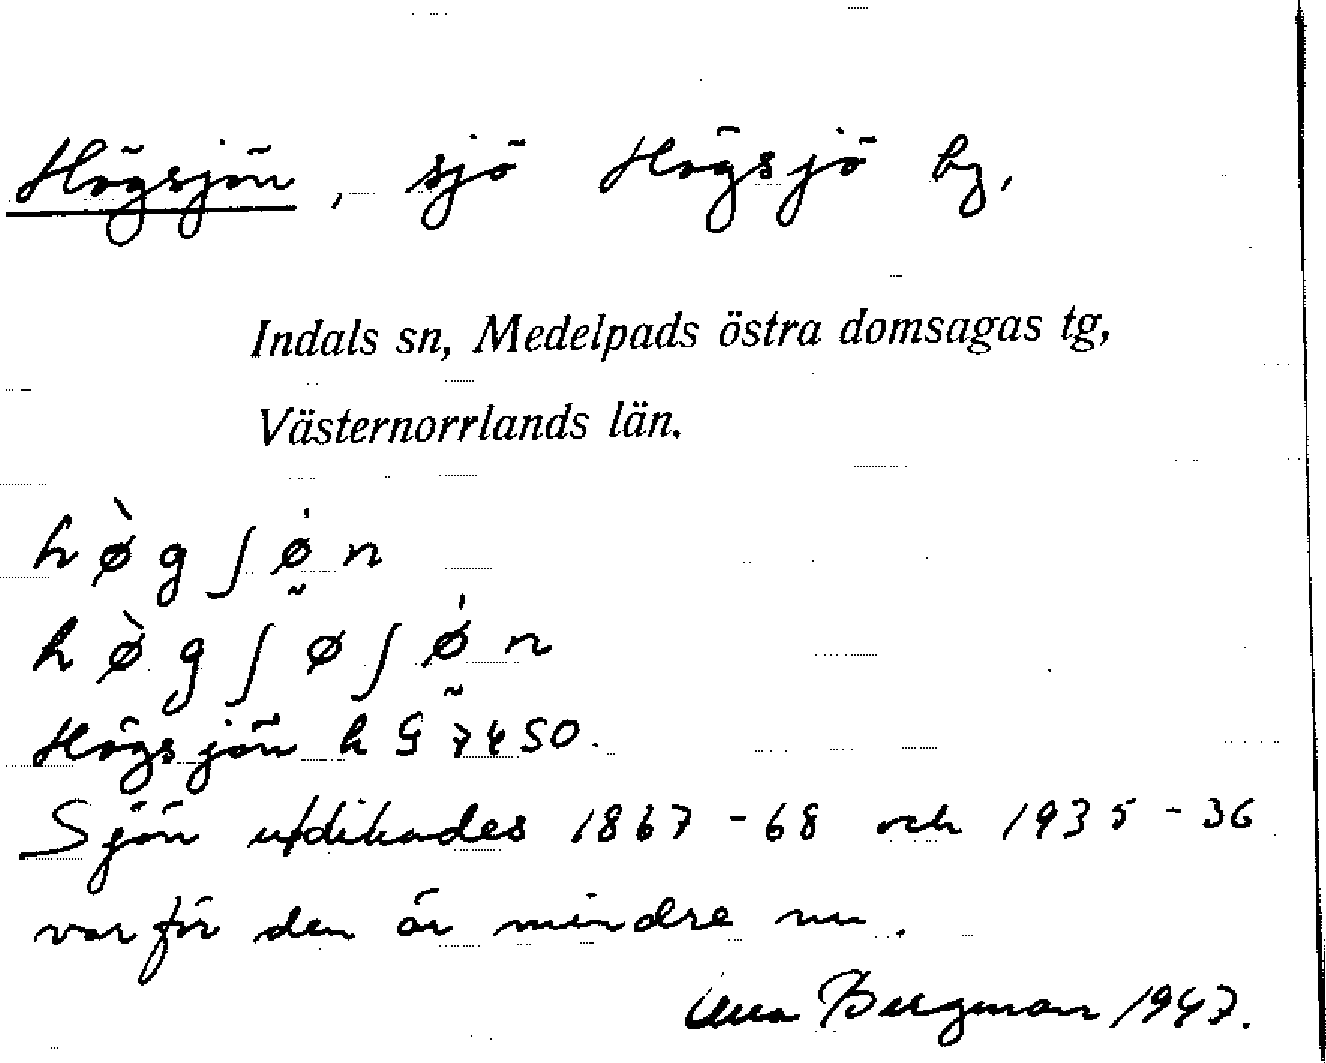 Högsjön, sjö Högsjö by,
Indals sn, Medelpads östra domsagas tg,
Västernorrlands län.
hø̀gʃø̰̇n
hø̀gʃøʃø̰̇n
Högsjön k G 7450.
Sjön utdikades 1867-68 och 1935-36
varför den är mindre nu.
Bergman 1947.